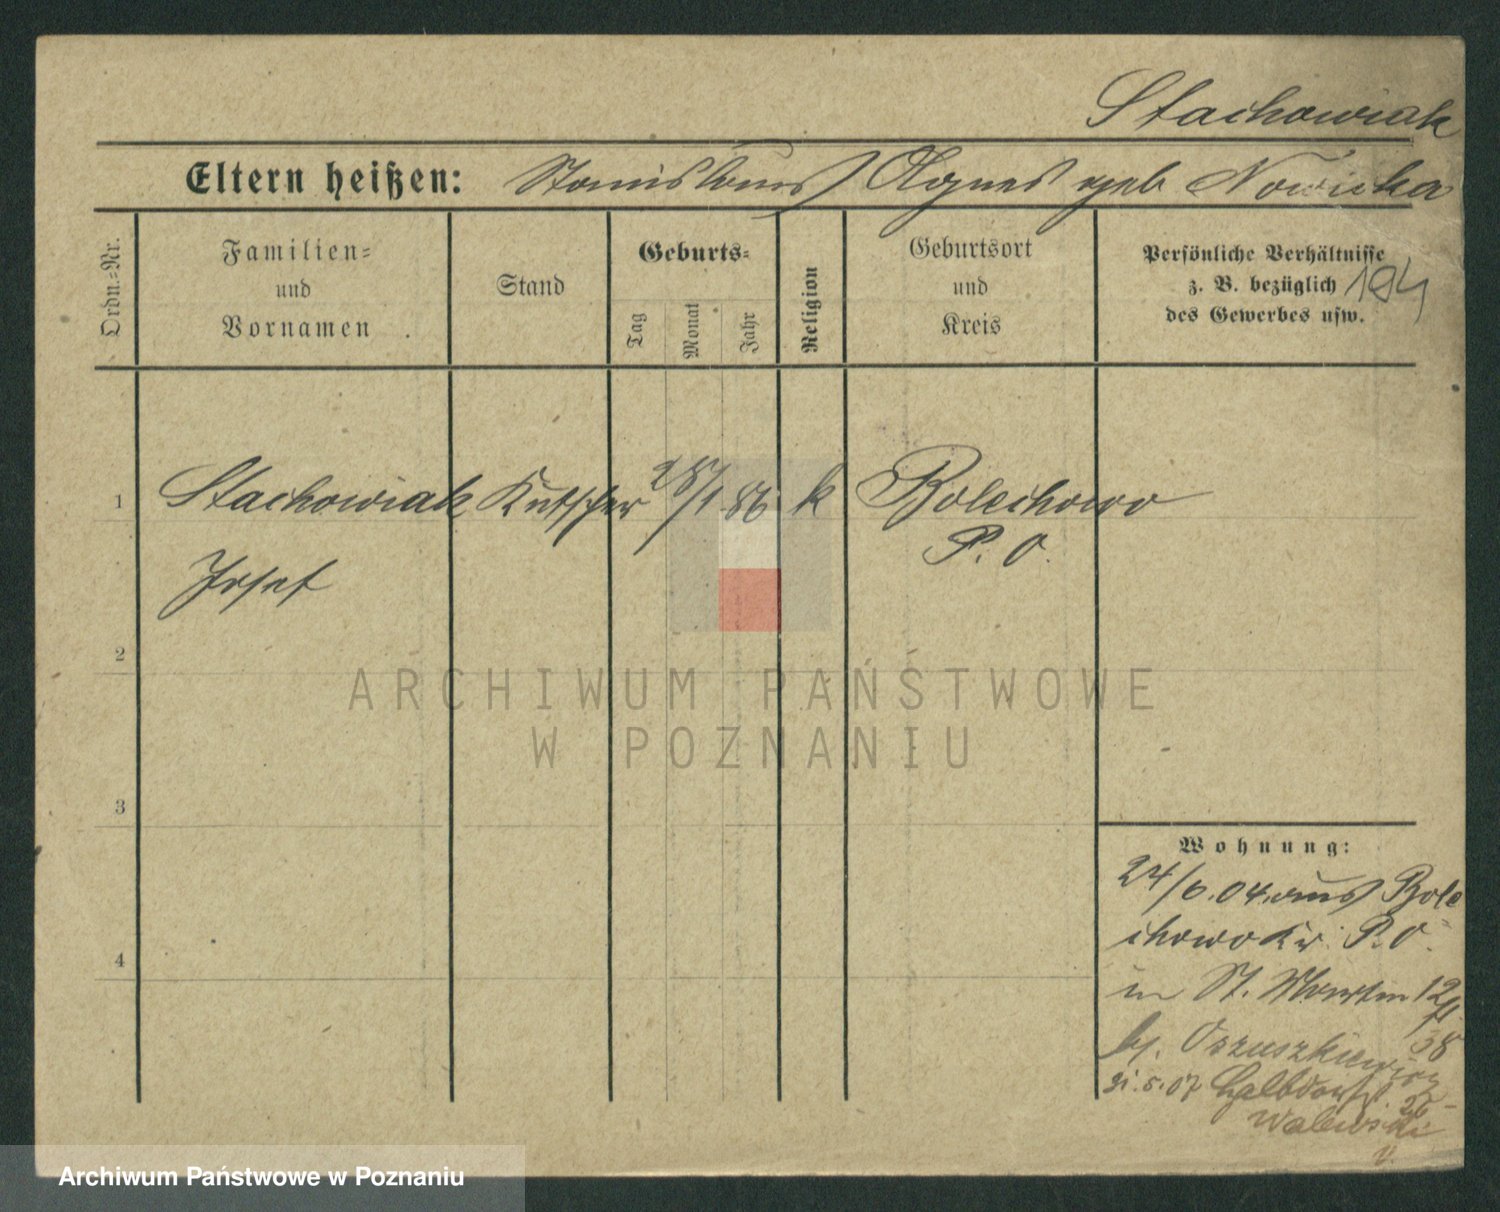 Stachowiak
Eltern heißen: Stanislaus Agnes geb Nowicka
Ordn.=Nr.
Familien=
und
Vornamen
Stand
Geburts=
Tag
Monat
Jahr
Religion
Geburtsort
und
Kreis
Persönliche Verhältnisse
z. B. bezüglich
des Gewerbes usw.
1 Stachowiak Kutscher 28/1 86 k Bolechowo
Josef P. O.
2
ARCHIWUM PAŃSTWOWE
W POZNANIU
3
Wohnung:
24/6.04. aus Bole
chowo Kr. P. O.
4
in St. Martin
bj. Oszuszkiewicz
21.5.07
Walewski
Archiwum Państwowe w Poznaniu